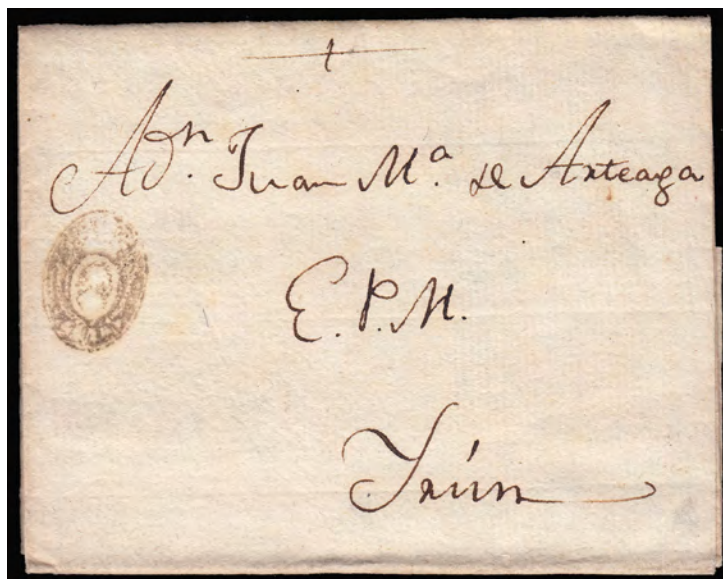 A Dn. Juan Ma. de Arteaga
E. P. M.
Irún